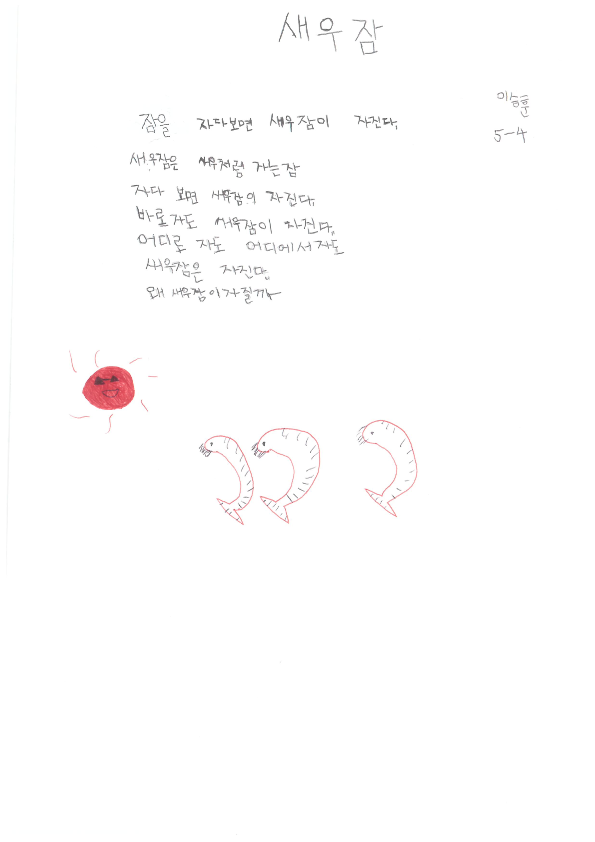 새우잠
이승훈
5-4
잠을 자다보면 새우잠이 자진다.
새우잠은 새우처럼 자는잠
자다 보면 새우잠의 자진다.
바로자도 새우잠이 자진다.
어디로 자도 어디에서자도
새우잠은 자진다.
왜 새우잠이자질까